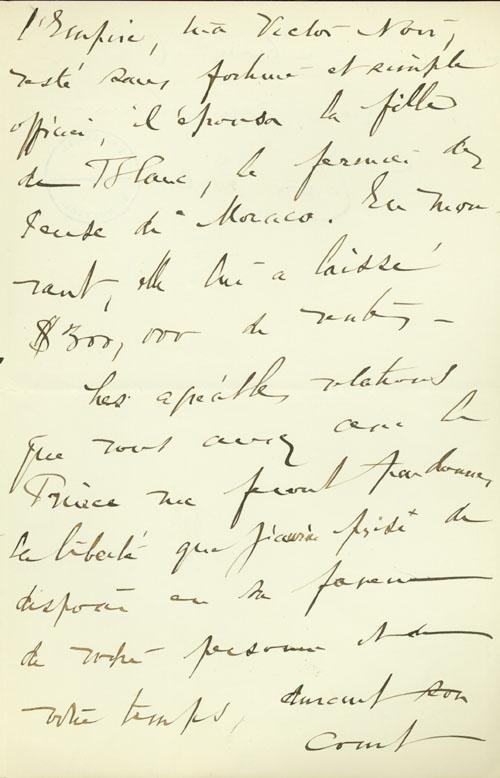 l'Empire, tua Victor Noir,
resté sans fortune et simple
officier, il épousa la fille
de Blanc, le fermier des
Jeux de Monaco. En mou-
rant, elle lui a laissé
$300,000 de rentes –
Les agréables relations
que vous aurez avec le
Prince me feront pardonner
la liberté que j'aurai prise de
disposer en sa faveur
de votre personne et de
votre temps, durant son
court